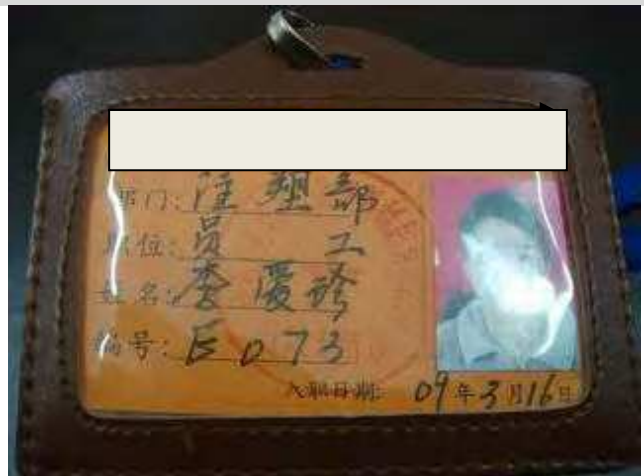 部门:注塑部
职位:员工
姓名:李
编号:E073
入职日期: 09年3月16日